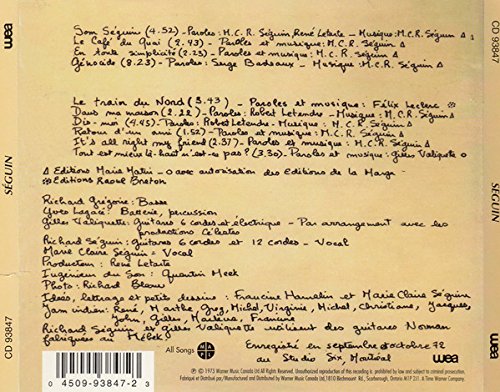 Som Séguin (4.52) - Paroles: M.C.R. Séguin, René Letarte - Musique: M.C.R. Séguin Δ
Le Café du Quai (2.43) - Paroles et musique: M.C.R. Séguin Δ
En toute simplicité (2.23) - Paroles et musique: M.C.R. Séguin Δ
Génocide (8.23) - Paroles: Serge - Musique: M.C.R. Séguin Δ
Le train du Nord (3.43) - Paroles et musique: Félix Leclerc
Dans ma maison (2.22) - Paroles: Robert Letendre - Musique: M.C.R. Séguin Δ
Dis-moi (4.45) - Paroles: Robert Letendre - Musique: M.C.R. Séguin Δ
Retour d'un ami (1.52) - Paroles et musique: M.C.R. Séguin Δ
It's all right my friend (2.37) - Paroles et musique: M.C.R. Séguin Δ
Tout est mieux là-haut n'est-ce pas? (3.30) Paroles et musique: Gilles Valiquette Δ
Δ Editions Marie - avec autorisation des Editions de la
Editions Raoul Breton
Richard Grégoire: Basse
Yves Lagacé: Batterie, percussion
Gilles Valiquette: guitares 6 cordes et électrique - Par arrangement avec les
productions Célestes
Richard Séguin: guitares 6 cordes et 12 cordes - Vocal
Marie Claire Séguin = Vocal
Producteur: René Letarte
Ingénieur du Son: Quentin Meek
Photo: Richard
Idées, lettrage et petits dessins: Francine Hamelin et Marie Claire Séguin
Jam indien: René, Marthe, Greg, Michel, Virginie, Michel, Christiane, Jacques,
John, Gilles, Francine
Richard Séguin et Gilles Valiquette utilisent des guitares Norman
fabriquées au Québek!
Enregistré en septembre octobre 72
au Studio Six, Montréal
All Songs
SOCAN
℗ © 1973 Warner Music Canada Ltd. All Rights Reserved. Unauthorized reproduction of this recording is prohibited by law and subject to criminal prosecution.
Fabriqué et distribué par/Manufactured and Distributed by Warner Music Canada Ltd.
wea
0 4509-93847-2 3
wea
SÉGUIN
CD 93847
CD 93847
SÉGUIN
wea